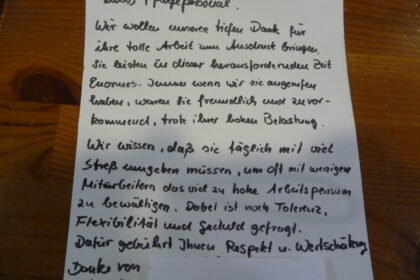 Liebes Pflegepersonal.
Wir wollen unseren tiefen Dank für
ihre tolle Arbeit zum Ausdruck bringen.
Sie leisten in dieser herausfordernden Zeit
Enormes. Immer wenn wir sie angerufen
haben, waren sie freundlich und zuvor-
kommend, trotz ihrer hohen Belastung.
Wir wissen, daß sie täglich mit viel
Streß umgeben müssen, um oft mit wenigen
Mitarbeitern das viel zu hohe Arbeitspensum
zu bewältigen. Dabei ist noch Toleranz,
Flexibilität und Geduld gefragt.
Dafür gebührt Ihnen Respekt u. Wertschätzung
Danke von